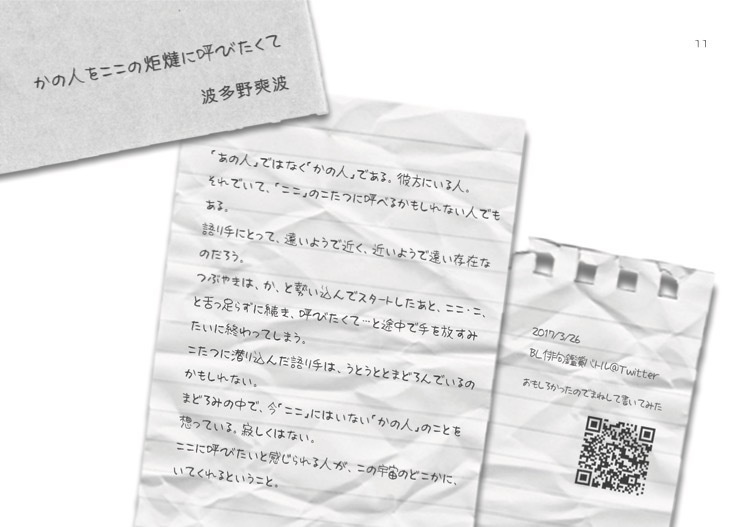 かの人をここの炬燵に呼びたくて
波多野爽波
11
「あの人」ではなく「かの人」である。彼方にいる人。
それでいて、「ここ」のこたつに呼べるかもしれない人でも
ある。
語り手にとって、遠いようで近く、近いようで遠い存在な
のだろう。
つぶやきは、か、と勢い込んでスタートしたあと、ここ・こ、
と舌っ足らずに続き、呼びたくて…と途中で手を放すみ
たいに終わってしまう。
こたつに潜り込んだ語り手は、うとうととまどろんでいるの
かもしれない。
まどろみの中で、今「ここ」にはいない「かの人」のことを
想っている。寂しくはない。
ここに呼びたいと感じられる人が、この宇宙のどこかに、
いてくれるということ。
2017/3/26
BL俳句鑑賞バトル@Twitter
おもしろかったのでまねして書いてみた